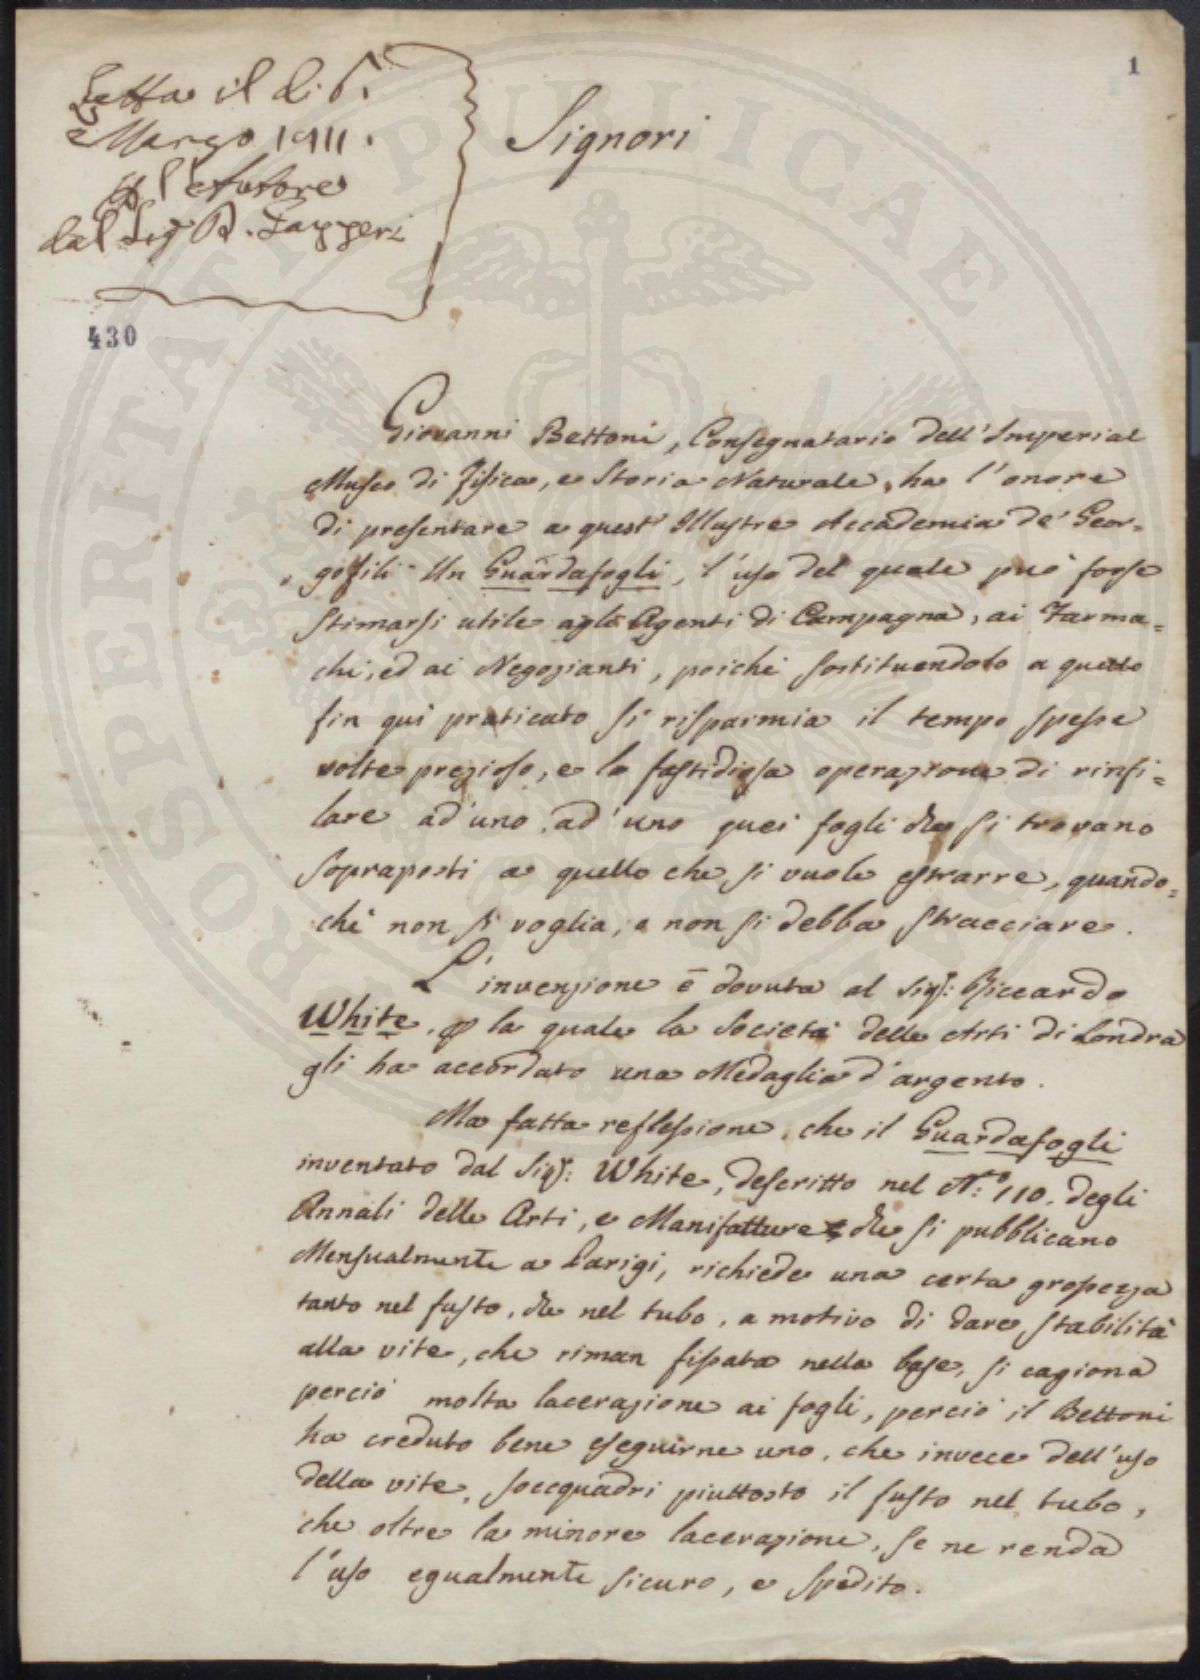 1
Letta il di 6.
Marzo 1811.
l'Autore
dal Sig.
Signori
430
Giovanni Bettoni, Consegnatario dell'Imperial
Museo di Fisica, e Storia Naturale, ha l'onore
di presentare a quest' Illustre Accademia de' Geor-
gofili Un Guardafogli, l'uso del quale può forse
stimarsi utile agli Agenti di Campagna, ai Farma=
chi, ed ai Negozianti, poichè sostituendolo a quello
fin quì praticato si risparmia il tempo spesse
volte prezioso, e la fastidiosa operazione di rinfi=
lare ad'uno, ad'uno quei fogli che si trovano
soprapposti a quello che si vuole estrarre, quando=
chè non si voglia, o non si debba stracciare.
L'invenzione è dovuta al Sig.r: Riccardo
White, p la quale la Società delle Arti di Londra
gli ha accordato una Medaglia d'argento.
Ma fatta reflessione, che il Guardafogli
inventato dal Sig.r: White, descritto nel N:o 110. degli
Annali delle Arti, e Manifatture che si pubblicano
Mensualmente a Parigi, richiede una certa grossezza
tanto nel fusto, che nel tubo, a motivo di dare stabilità
alla vite, che riman fissata nella base, si cagiona
perciò molta lacerazione ai fogli, perciò il Bettoni
ha creduto bene eseguirne uno, che invece dell'uso
della vite, soccquadri piuttosto il fusto nel tubo,
che oltre la minore lacerazione, se ne renda
l'uso egualmente sicuro, e spedito.
PROSPERITATI PUBLICAE